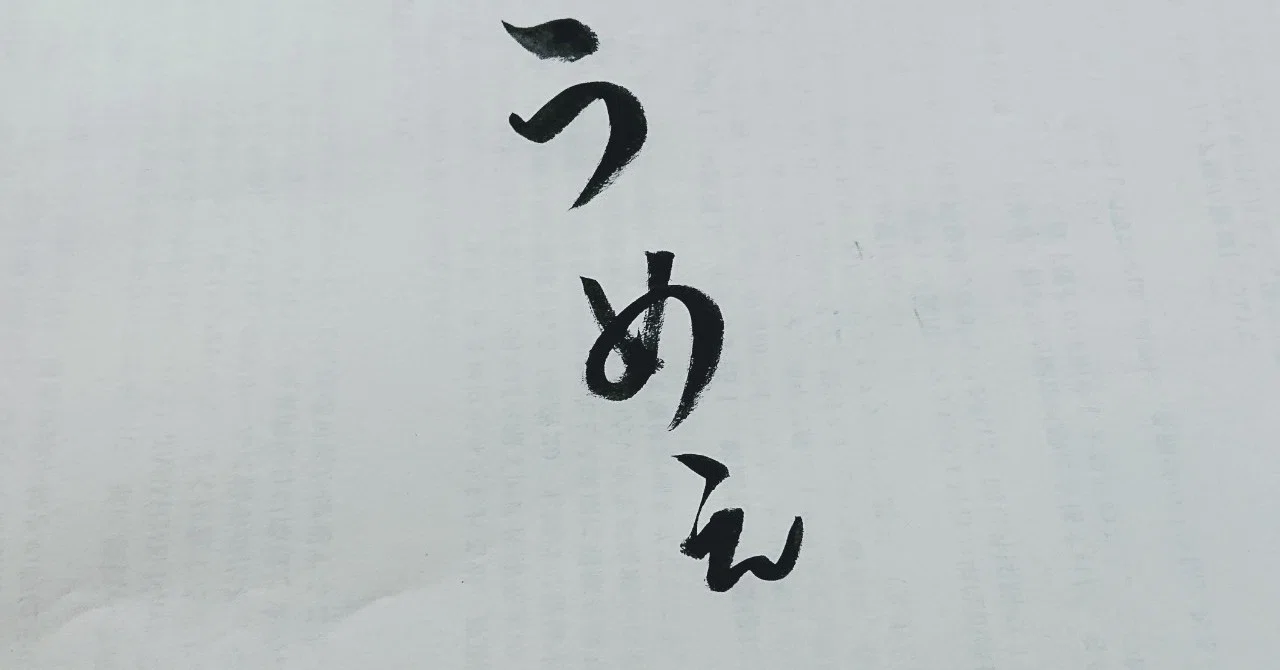 うめえ